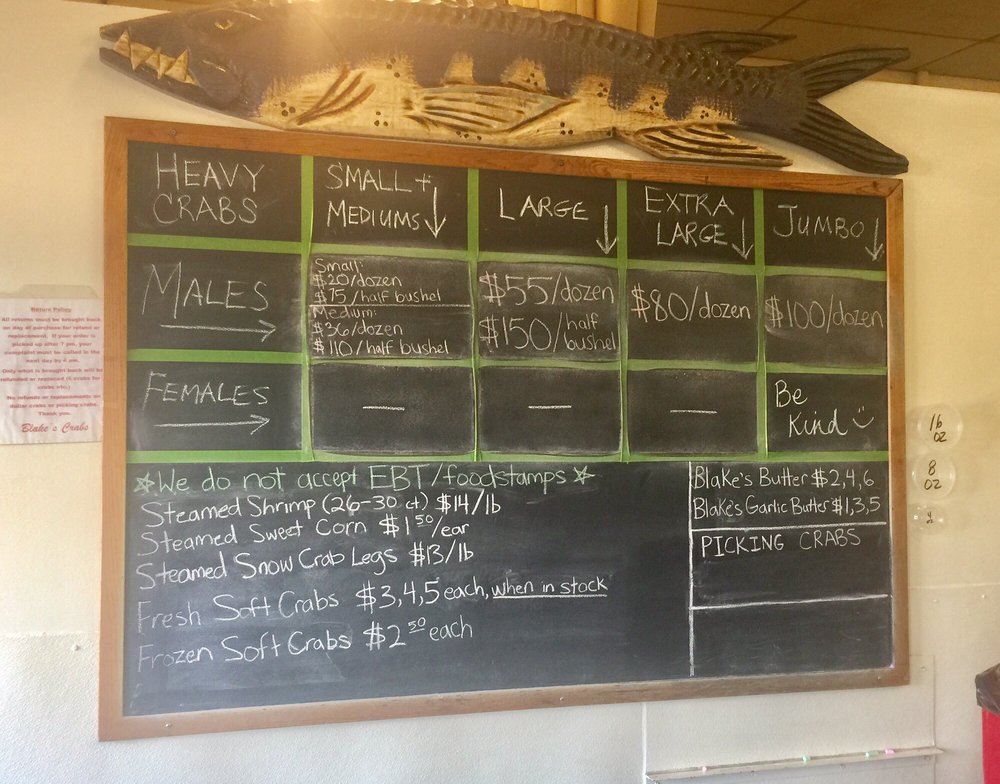 HEAVY
CRABS
SMALL +
MEDIUMS ↓
LARGE ↓
EXTRA
LARGE ↓
JUMBO ↓
MALES →
Small:
$20/dozen
$75/half bushel
Medium:
$36/dozen
$110/half bushel
$55/dozen
$150/half
bushel
$80/dozen
$100/dozen
FEMALES →
—
—
—
Be
Kind
☆We do not accept EBT/foodstamps☆
Steamed Shrimp (26-30 ct) $14/lb
Steamed Sweet Corn $1 50/ear
Steamed Snow Crab Legs $13/lb
Fresh Soft Crabs $3,4,5 each, when in stock
Frozen Soft Crabs $2 50 each
Blake's Butter $2,4,6
Blake's Garlic Butter $1,3,5
PICKING CRABS
Return Policy
All returns must be brought back
on day of purchase for refund or
replacement. If your order is
picked up after 7 pm, your
complaint must be called in the
next day by
Only what is brought back will be
refunded or replaced
No refunds or replacements on
dollar crabs or picking crabs.
Thank you.
Blake's Crabs
16
OZ
8
OZ